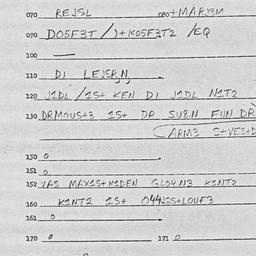 070 REJSL 080 + MARJ3M
090 DO5F3T /)+KO5F3T2 /EQ
100
110 DI LEJSR,N,
120 J1DL /1S+ KEN DI J1DL N1T2
130 DRMOUS+3 1S+ DR SU8.N FUN DR
(ARM3 S+VES+D
150 0
151 0
152 VAS MAX1S+N1DEN GLO4N3 K1NT2
160 K1NT2 1S+ O44JSS+LOUF3
161 0
170 0 171 0